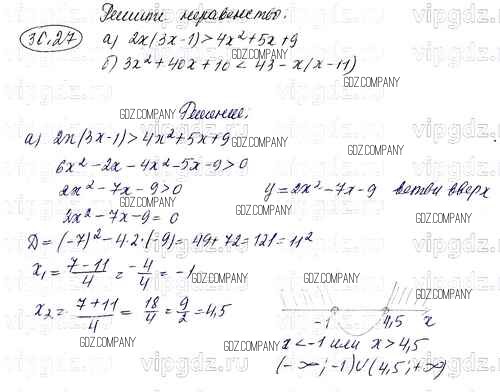 Решить неравенство:
36.27 а) 2x(3x-1)>4x²+5x+9
б) 3x²+40x+10<43-x(x-11)
Решение:
а) 2x(3x-1)>4x²+5x+9
6x²-2x-4x²-5x-9>0
2x²-7x-9>0 y=2x²-7x-9 ветви вверх
2x²-7x-9=0
D=(-7)²-4·2·(-9)=49+72=121=11²
x₁=(7-11)/4=-4/4=-1
x₂=(7+11)/4=18/4=9/2=4,5
-1 4,5 x
x<-1 или x>4,5
(-∞;-1)∪(4,5;+∞)
GDZ.COMPANY
vipgdz.com